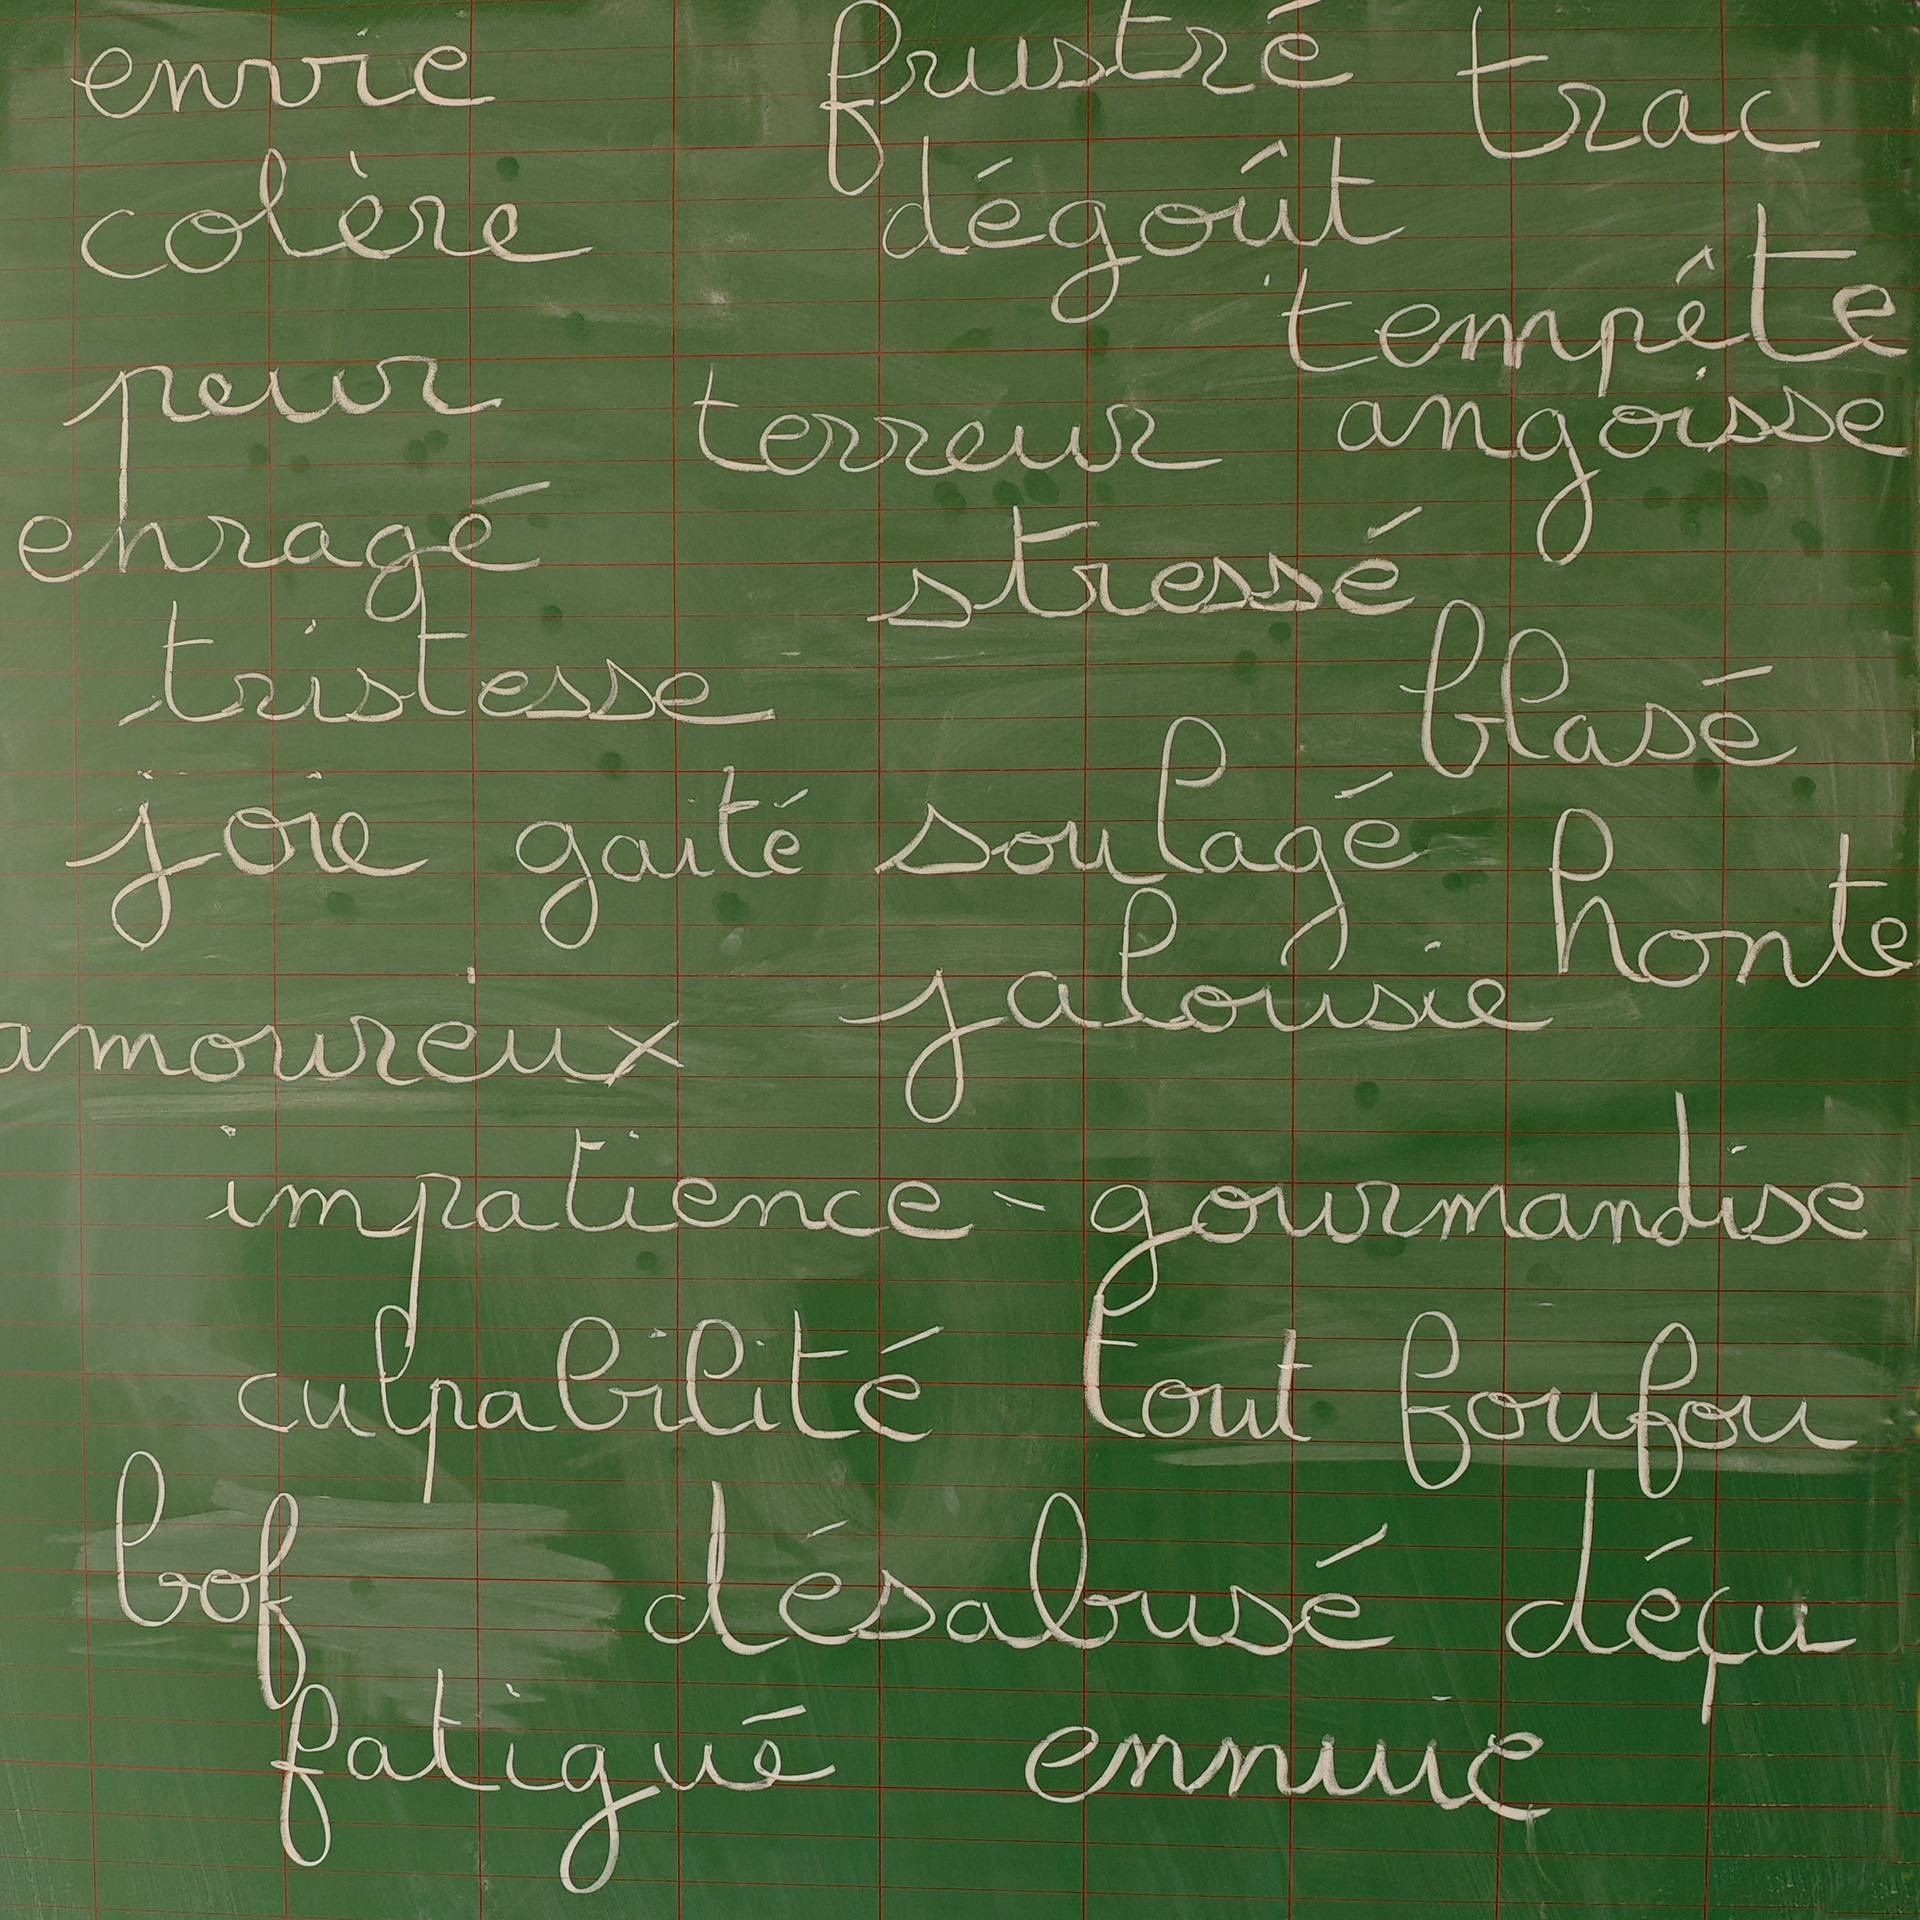 envie frustré trac
colère dégoût
tempête
peur terreur angoisse
enragé stressé
tristesse blasé
joie gaité soulagé honte
amoureux jalousie
impatience - gourmandise
culpabilité tout foufou
bof désabusé déçu
fatigué ennuie